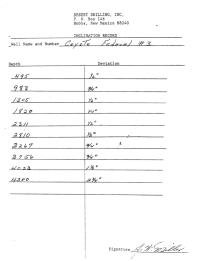 DESERT DRILLING, INC.
P. O. Box 148
Hobbs, New Mexico 88240
INCLINATION RECORD
Well Name and Number Coyote Federal # 3
Depth Deviation
495 ½°
983 ¾°
1305 ½°
1820
2311 ½°
2810 ½°
3267 ¾°
3756 ¾°
4300
Signature